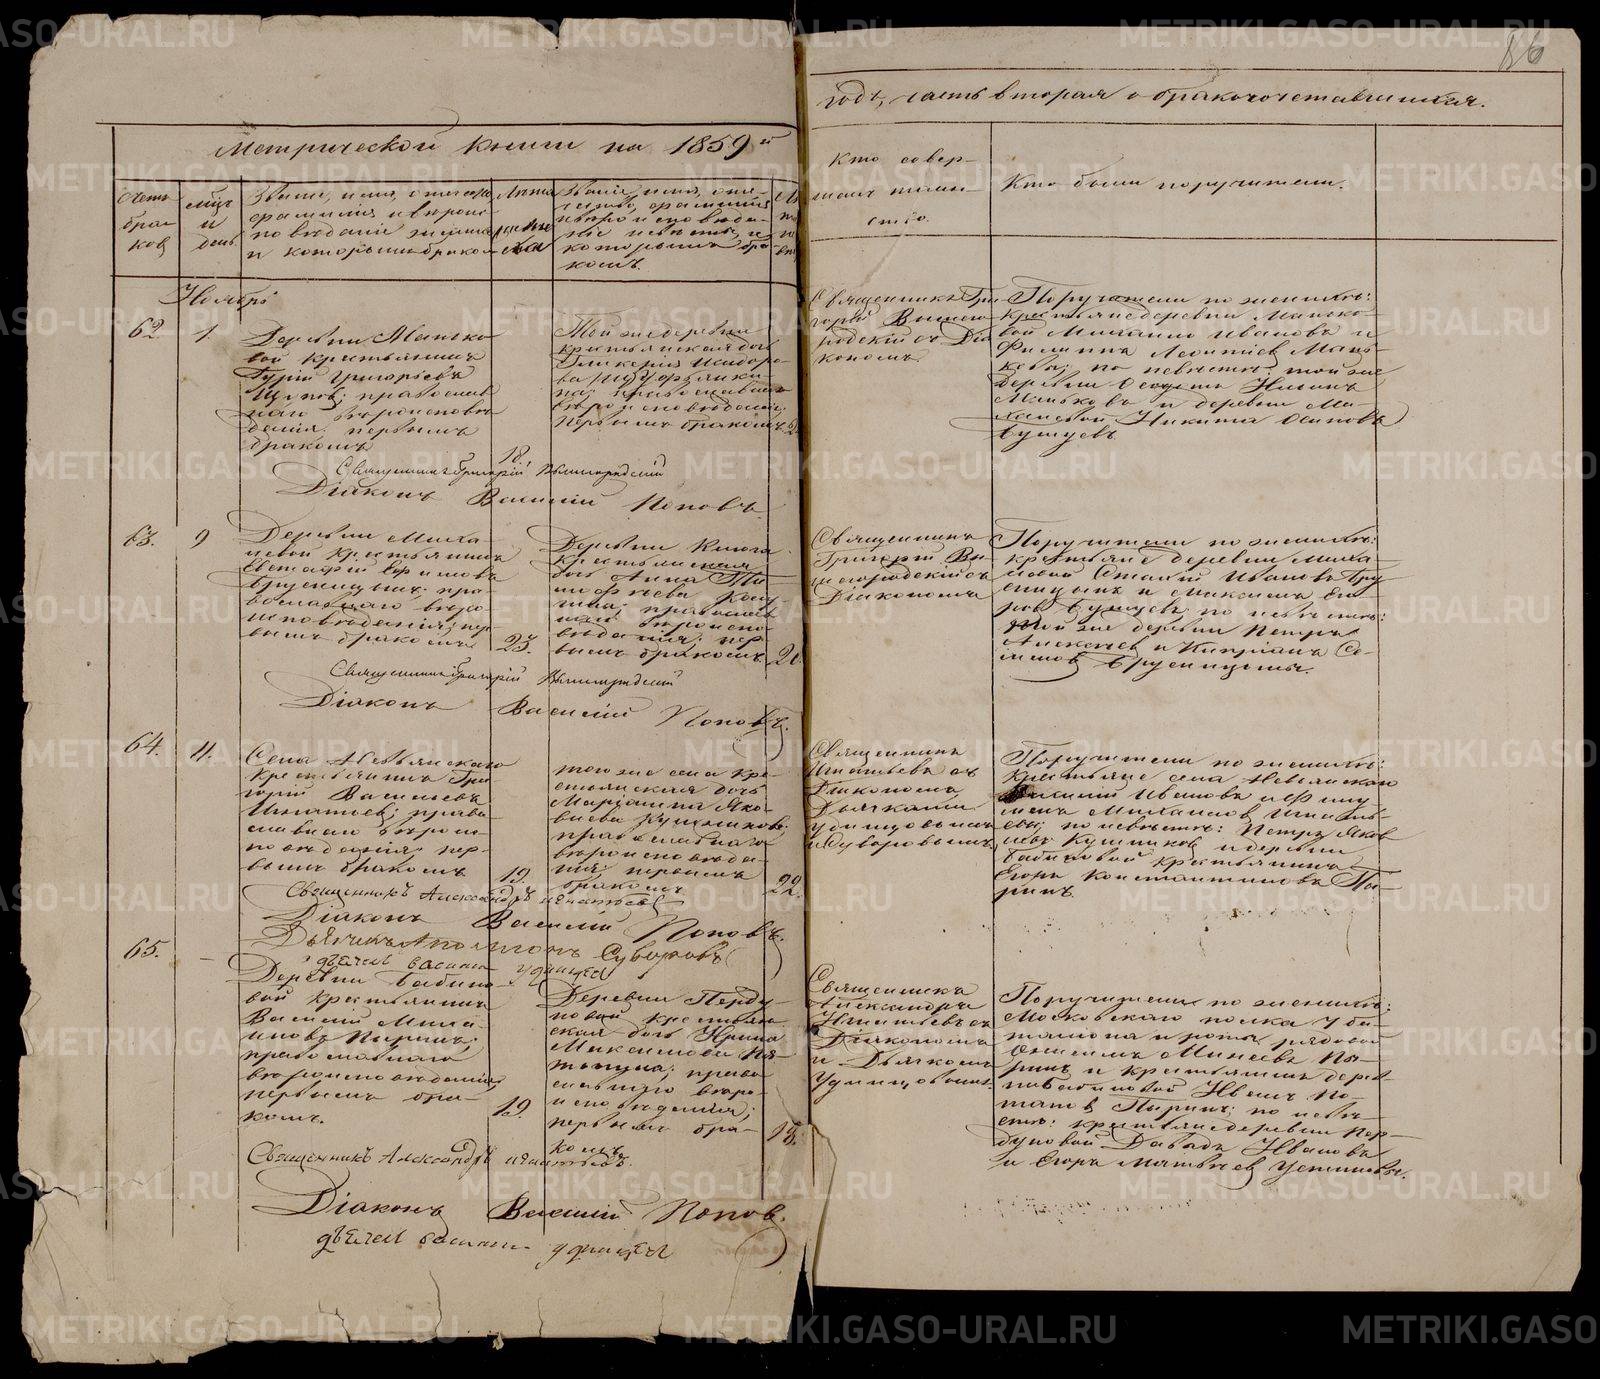 METRIKI.GASO-URAL.RU
86
Метрической книги на 1859й
годъ, часть вторая о бракосочетавшихся.
Счетъ браковъ
мцъ и день
Званіе, имя, отчество,
фамилія и вѣроис-
повѣданіе жениха
и которымъ бракомъ
Лѣта жениха
Званіе, имя, оте-
чество, фамилія
и вѣроисповѣда-
ніе невѣсты, и
которымъ бра-
комъ.
Кто совер-
шалъ таин-
ство.
Кто были поручители.
Ноябрь
62.
1.
Деревни Манько-
вой крестьянинъ
Гурій Григорьевъ
православ
наго вѣроисповѣ
данія, первымъ
бракомъ
18.
Той же деревни
крестьянская дочь
Гликерія Исидоро-
ва
православнаго
вѣроисповѣданія,
первымъ бракомъ
Священникъ Гри-
горій Вышего
родскій съ Діа
кономъ.
Поручители по женихѣ:
крестьяне деревни Манько-
вой Михаило Ивановъ и
Филиппъ Леонтіев Мань-
ковы; по невѣстѣ: той же
деревни
Маньковъ и деревни Ми-
халевой Никита Осиповъ
Бушуевъ
Священникъ Григорій Вышегородскій
Діаконъ Василій Поповъ.
63.
9
Деревни Миха-
левой крестьянинъ
Евстафій Ефимовъ
Брусницынъ; пра-
вославнаго вѣро-
исповѣданія; пер-
вымъ бракомъ
23.
Деревни
крестьянская
дочь Анна Ти-
мофѣева
православ
наго вѣроиспо-
вѣданія; пер-
вымъ бракомъ
Священникъ
Григорій Вы-
шегородскій съ
Діакономъ
Поручители по женихѣ:
крестьяне деревни Миха-
левой Ивановъ Бру-
сницынъ и Максимъ Его-
ровъ Бушуевъ по невѣстѣ:
той же деревни Петръ
Алексѣев и Кипріанъ Се-
меновъ Брусницыны.
Священникъ Григорій Вышегородскій
Діаконъ Василій Поповъ.
64.
11.
Села Невьянскаго
крестьянинъ Гри
горій Васильевъ
Игнатьев; право-
славнаго вѣроис-
повѣданія; пер-
вымъ бракомъ
19.
того же села кре-
стьянская дочь
Маріанна Яко-
влева Кушникова;
православнаго
вѣроисповѣда-
нія, первымъ
бракомъ
22.
Священникъ
Игнатьевъ съ
Діакономъ
Дьячками
Удинцовымъ
и Суворовымъ
Поручители по женихѣ:
крестьяне села Невьянскаго
Василій Ивановъ и
Михайлов Игнать-
евы; по невѣстѣ: Петръ Яков
левъ Кушников и деревни
Бабиновой крестьянинъ
Егоръ Константиновъ Пы-
ринъ.
Священникъ Александръ Игнатьев
Діаконъ Василій Поповъ.
Дьячекъ Аполлонъ Суворовъ
дьячек василей удинцев
65.
–
Деревни Бабино-
вой крестьянинъ
Василій Михай-
ловъ Пыринъ;
православнаго
вѣроисповѣданія;
первымъ бра-
комъ.
19.
Деревни Перду-
новой крестьян-
ская дочь Ирина
Максимова
право
славнаго вѣро-
исповѣданія;
первымъ бра-
комъ.
18.
Священникъ
Александръ
Игнатьевъ съ
Діакономъ
и Дьячкомъ
Удинцовымъ
Поручители по женихѣ:
Московскаго полка 4 ба-
таліона роты рядовой
Минеевъ Пы-
ринъ и крестьянинъ дерев-
ни Бабиновой Иванъ По-
таповъ Пыринъ; по невѣ-
стѣ: крестьяне деревни Пер-
дуновой Давыдъ Ивановъ
и Егоръ Матвѣев Устиновы.
Священникъ Александръ Игнатьевъ.
Діаконъ Василій Попов.
дьячек василей удинцев